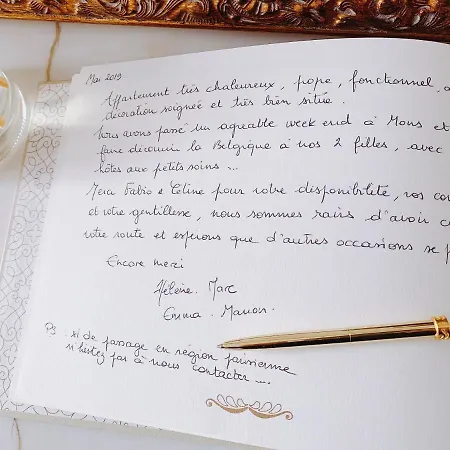 Mai 2019
Appartement très chaleureux, propre, fonctionnel,
décoration soignée et très bien située.
Nous avons passé un agréable week end à Mons et
faire découvrir la Belgique à nos 2 filles, avec
hôtes aux petits soins ...
Merci Fabio e Céline pour votre disponibilité, vos
et votre gentillesse, nous sommes ravis d'avoir
votre route et esperons que d'autres occasions se
Encore merci
Hélène. Marc
Emma. Manon.
Ps. si de passage en région parisienne
n'hesitez pas à nous contacter ...